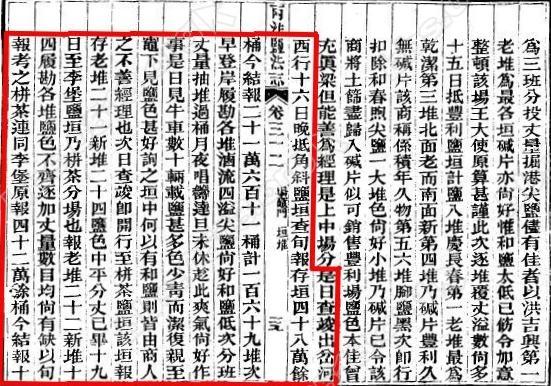 為三班分投丈量掘港尖鹽儘有佳者以洪吉興第一
老堆爲最各垣碱片亦尚好惟和鹽太低已飭令加意
整頓該場王大使原算甚謹慎此次逐堆覆丈溢數尚多
十五日抵豐利鹽垣計鹽入堆慶長春第一老堆最為
乾潔第三堆北面老而南面新第四堆乃碱片豐利久
無碱片該商稱係積年久物第五六堆腳鹽黑次卽行
扣除和春煦尖鹽一大堆色尚好小堆乃碱片已令該
商將土篩盡歸入碱片似可銷售豐利場鹽色本佳曾
充眞梁但能善爲經理是上中場分是日查竣出岔河
鹽法 卷三十二 垣堆
西行十六日晚抵角斜鹽垣查旬報存垣四十八萬餘
桶今結報二十一萬六百十一桶計一百六十九堆次
早登岸履勘各堆滷流四溢尖鹽尚好和鹽低次分班
丈量抽堆過桶月夜唱籌達旦未休趁此爽氣尚好作
事是日見牛車數十輛載鹽甚多色少靑而潔復親至
竈下見鹽色甚好詢之垣中何以有和鹽則皆由商人
之不善經理也次日查竣卽開行至栟茶鹽垣該垣報
存老堆二十一新堆二十四鹽色中平分丈已畢十九
日至李堡鹽垣乃栟茶分場也報老堆二十二新堆十
四履勘各堆鹽色不齊逐加丈量數目均尚有缺以旬
報考之栟茶連同李堡原報四十二萬餘桶今結報十